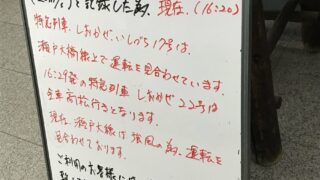 を記録した為、現在、(16:20)
特急列車、しおかぜ、いしづち17号は
瀬戸大橋線上で運転を見合わせています。
16:29発の特急列車、しおかぜ22号は
全車高松行きとなります。
現在、瀬戸大橋線は強風の為、運転を
見合わせております。
ご利用のお客様には